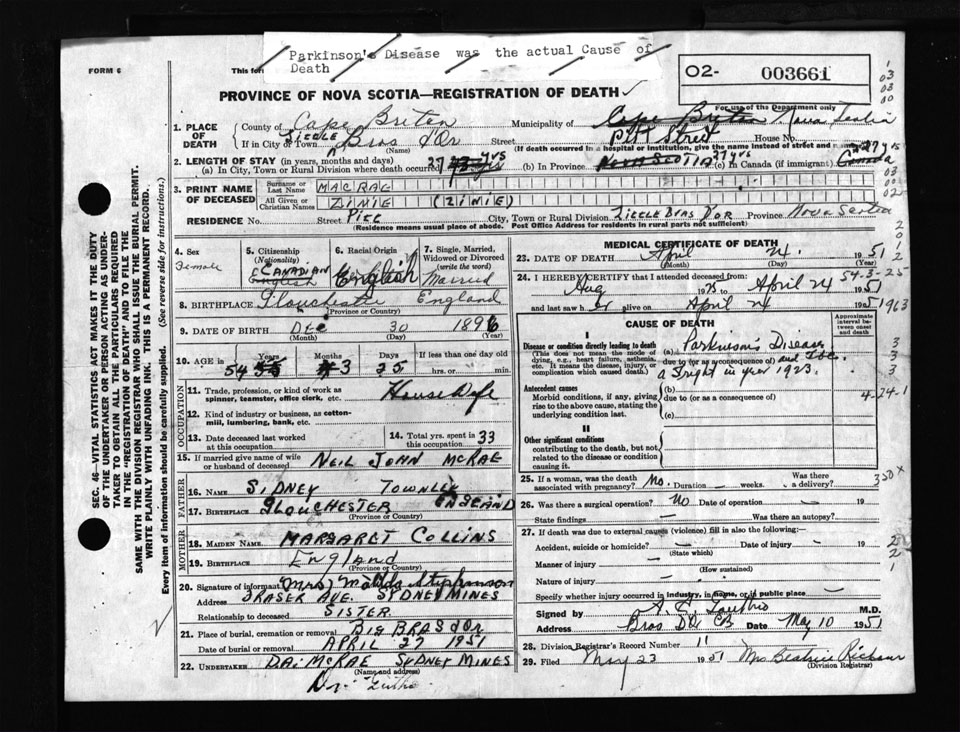 Parkinson's Disease was the actual Cause of
Death
FORM 6
This for
O2- 003661
For use of the Department only
PROVINCE OF NOVA SCOTIA—REGISTRATION OF DEATH
1. PLACE OF DEATH
County of Cape Breton Municipality of Cape Breton Nova Scotia
If in City or Town Little Bras d'Or Street Pitt Street House No.
(Name) (If death occurred in a hospital or institution, give the name instead of street and
2. LENGTH OF STAY (in years, months and days)
(a) In City, Town or Rural Division where death occurred 27 yrs (b) In Province NOVA SCOTIA 27 yrs (c) In Canada (if immigrant) 27 yrs Canada
3. PRINT NAME OF DECEASED
Surname or Last Name MACRAE
All Given or Christian Names ZINIE (ZINIE)
RESIDENCE No. Street Pitt City, Town or Rural Division Little Bras D'or Province Nova Scotia
(Residence means usual place of abode. Post Office Address for residents in rural parts not sufficient)
4. Sex Female
5. Citizenship (Nationality) CANADIAN English
6. Racial Origin English
7. Single, Married, Widowed or Divorced (write the word) Married
8. BIRTHPLACE Glouchester England
(Province or Country)
9. DATE OF BIRTH Dec 30 1896
(Month) (Day) (Year)
10. AGE in Years Months Days If less than one day old
54 3 25 hrs. or min.
OCCUPATION
11. Trade, profession, or kind of work as spinner, teamster, office clerk, etc. House Wife
12. Kind of industry or business, as cotton-mill, lumbering, bank, etc.
13. Date deceased last worked at this occupation
14. Total yrs. spent in this occupation 33
15. If married give name of wife or husband of deceased NEIL JOHN McRAE
FATHER
16. NAME SIDNEY TOWNLEY
17. BIRTHPLACE GLOUCHESTER ENGLAND
(Province or Country)
MOTHER
18. MAIDEN NAME MARGARET COLLINS
19. BIRTHPLACE England
(Province or Country)
20. Signature of informant Mrs Stephenson
Address FRASER AVE. SYDNEY MINES
Relationship to deceased SISTER
21. Place of burial, cremation or removal BIG BRAS d'Or
Date of burial or removal APRIL 27 1951
22. UNDERTAKER DAI McRAE SYDNEY MINES
(Name and address)
MEDICAL CERTIFICATE OF DEATH
23. DATE OF DEATH April 24 1951
(Month) (Day)
24. I HEREBY CERTIFY that I attended deceased from 54-3-25
Aug to April 24 1951
and last saw her alive on April 24 1951
CAUSE OF DEATH
Approximate interval between onset and death
I
Disease or condition directly leading to death
(This does not mean the mode of dying, e.g., heart failure, asthenia, etc. It means the disease, injury, or complication which caused death.)
(a) Parkinson's Disease
due to (or as a consequence of)
a Fright in year 1923.
Antecedent causes
Morbid conditions, if any, giving rise to the above cause, stating the underlying condition last.
(b)
due to (or as a consequence of)
(c)
4-24-1
II
Other significant conditions
contributing to the death, but not related to the disease or condition causing it.
25. If a woman, was the death associated with pregnancy? No. Duration — weeks. Was there a delivery? 350 X
26. Was there a surgical operation? No Date of operation — 19
State findings — Was there an autopsy?
27. If death was due to external causes (violence) fill in also the following:
Accident, suicide or homicide? — Date of injury — 19
(State which)
Manner of injury —
(How sustained)
Nature of injury —
Specify whether injury occurred in industry, in home, or in public place —
Signed by M.D.
Address Bras D'Or CB Date May 10 1951
28. Division Registrar's Record Number 11
29. Filed May 23 1951 Mrs Beatrice
(Division Registrar)
SEC. 46—VITAL STATISTICS ACT MAKES IT THE DUTY
OF THE UNDERTAKER OR PERSON ACTING AS UNDER-
TAKER TO OBTAIN ALL THE PARTICULARS REQUIRED
IN THE "REGISTRATION OF DEATH" AND TO FILE THE
SAME WITH THE DIVISION REGISTRAR WHO SHALL ISSUE THE BURIAL PERMIT.
WRITE PLAINLY WITH UNFADING INK. THIS IS A PERMANENT RECORD.
Every item of information should be carefully supplied. (See reverse side for instructions.)